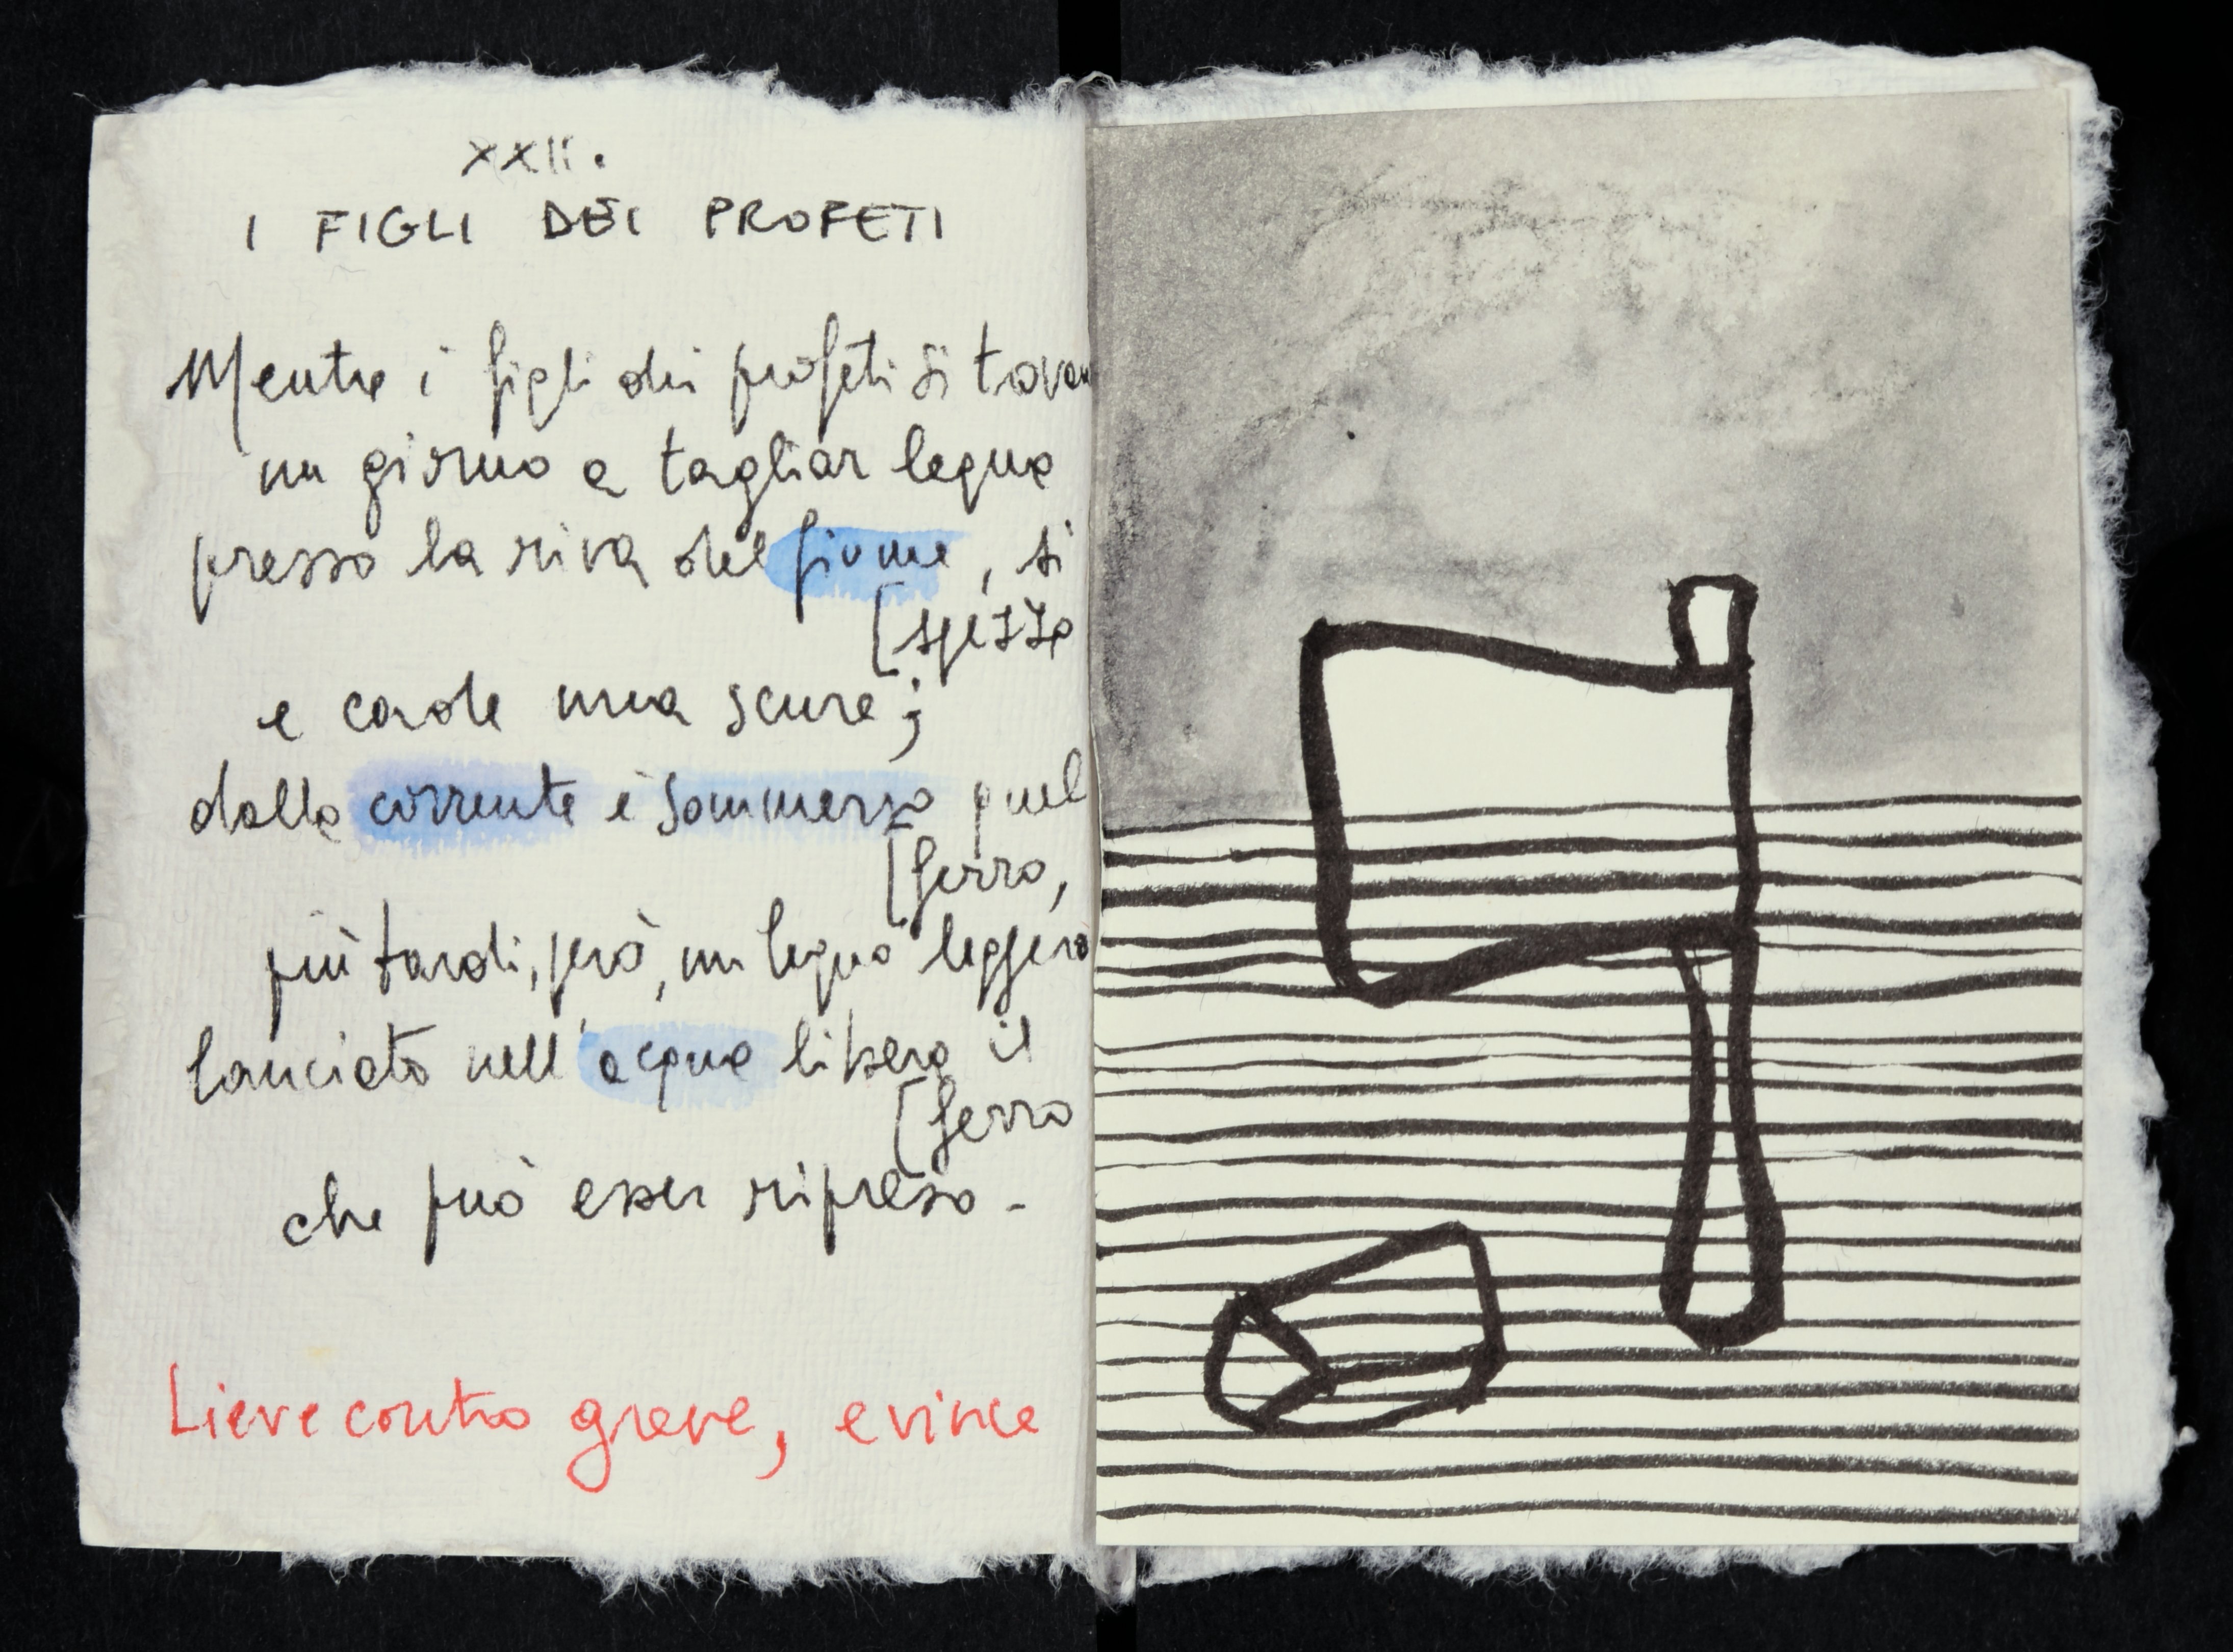 xxii.
I FIGLI DEI PROFETI
Mentre i figli dei profeti si trovan
un giorno a tagliar legna
presso la riva del fiume, si
[spezza
e cade una scure;
dalla corrente è sommerso quel
[ferro,
più tardi, però, un legno leggero
lanciato nell'acqua libera il
[ferro
che può esser ripreso.
Lieve contro greve, e vince